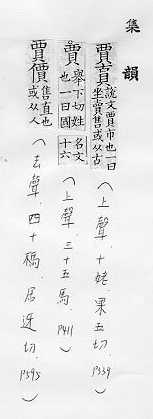 集韻
賈 說文賈市也一曰坐賣售或从古（上聲．十姥．果五切．P339）
賈 舉下切姓也一曰國名文十六（上聲．三十五馬．P411）
賈價 售直也或从人（去聲．四十禡．居迓切．P595）